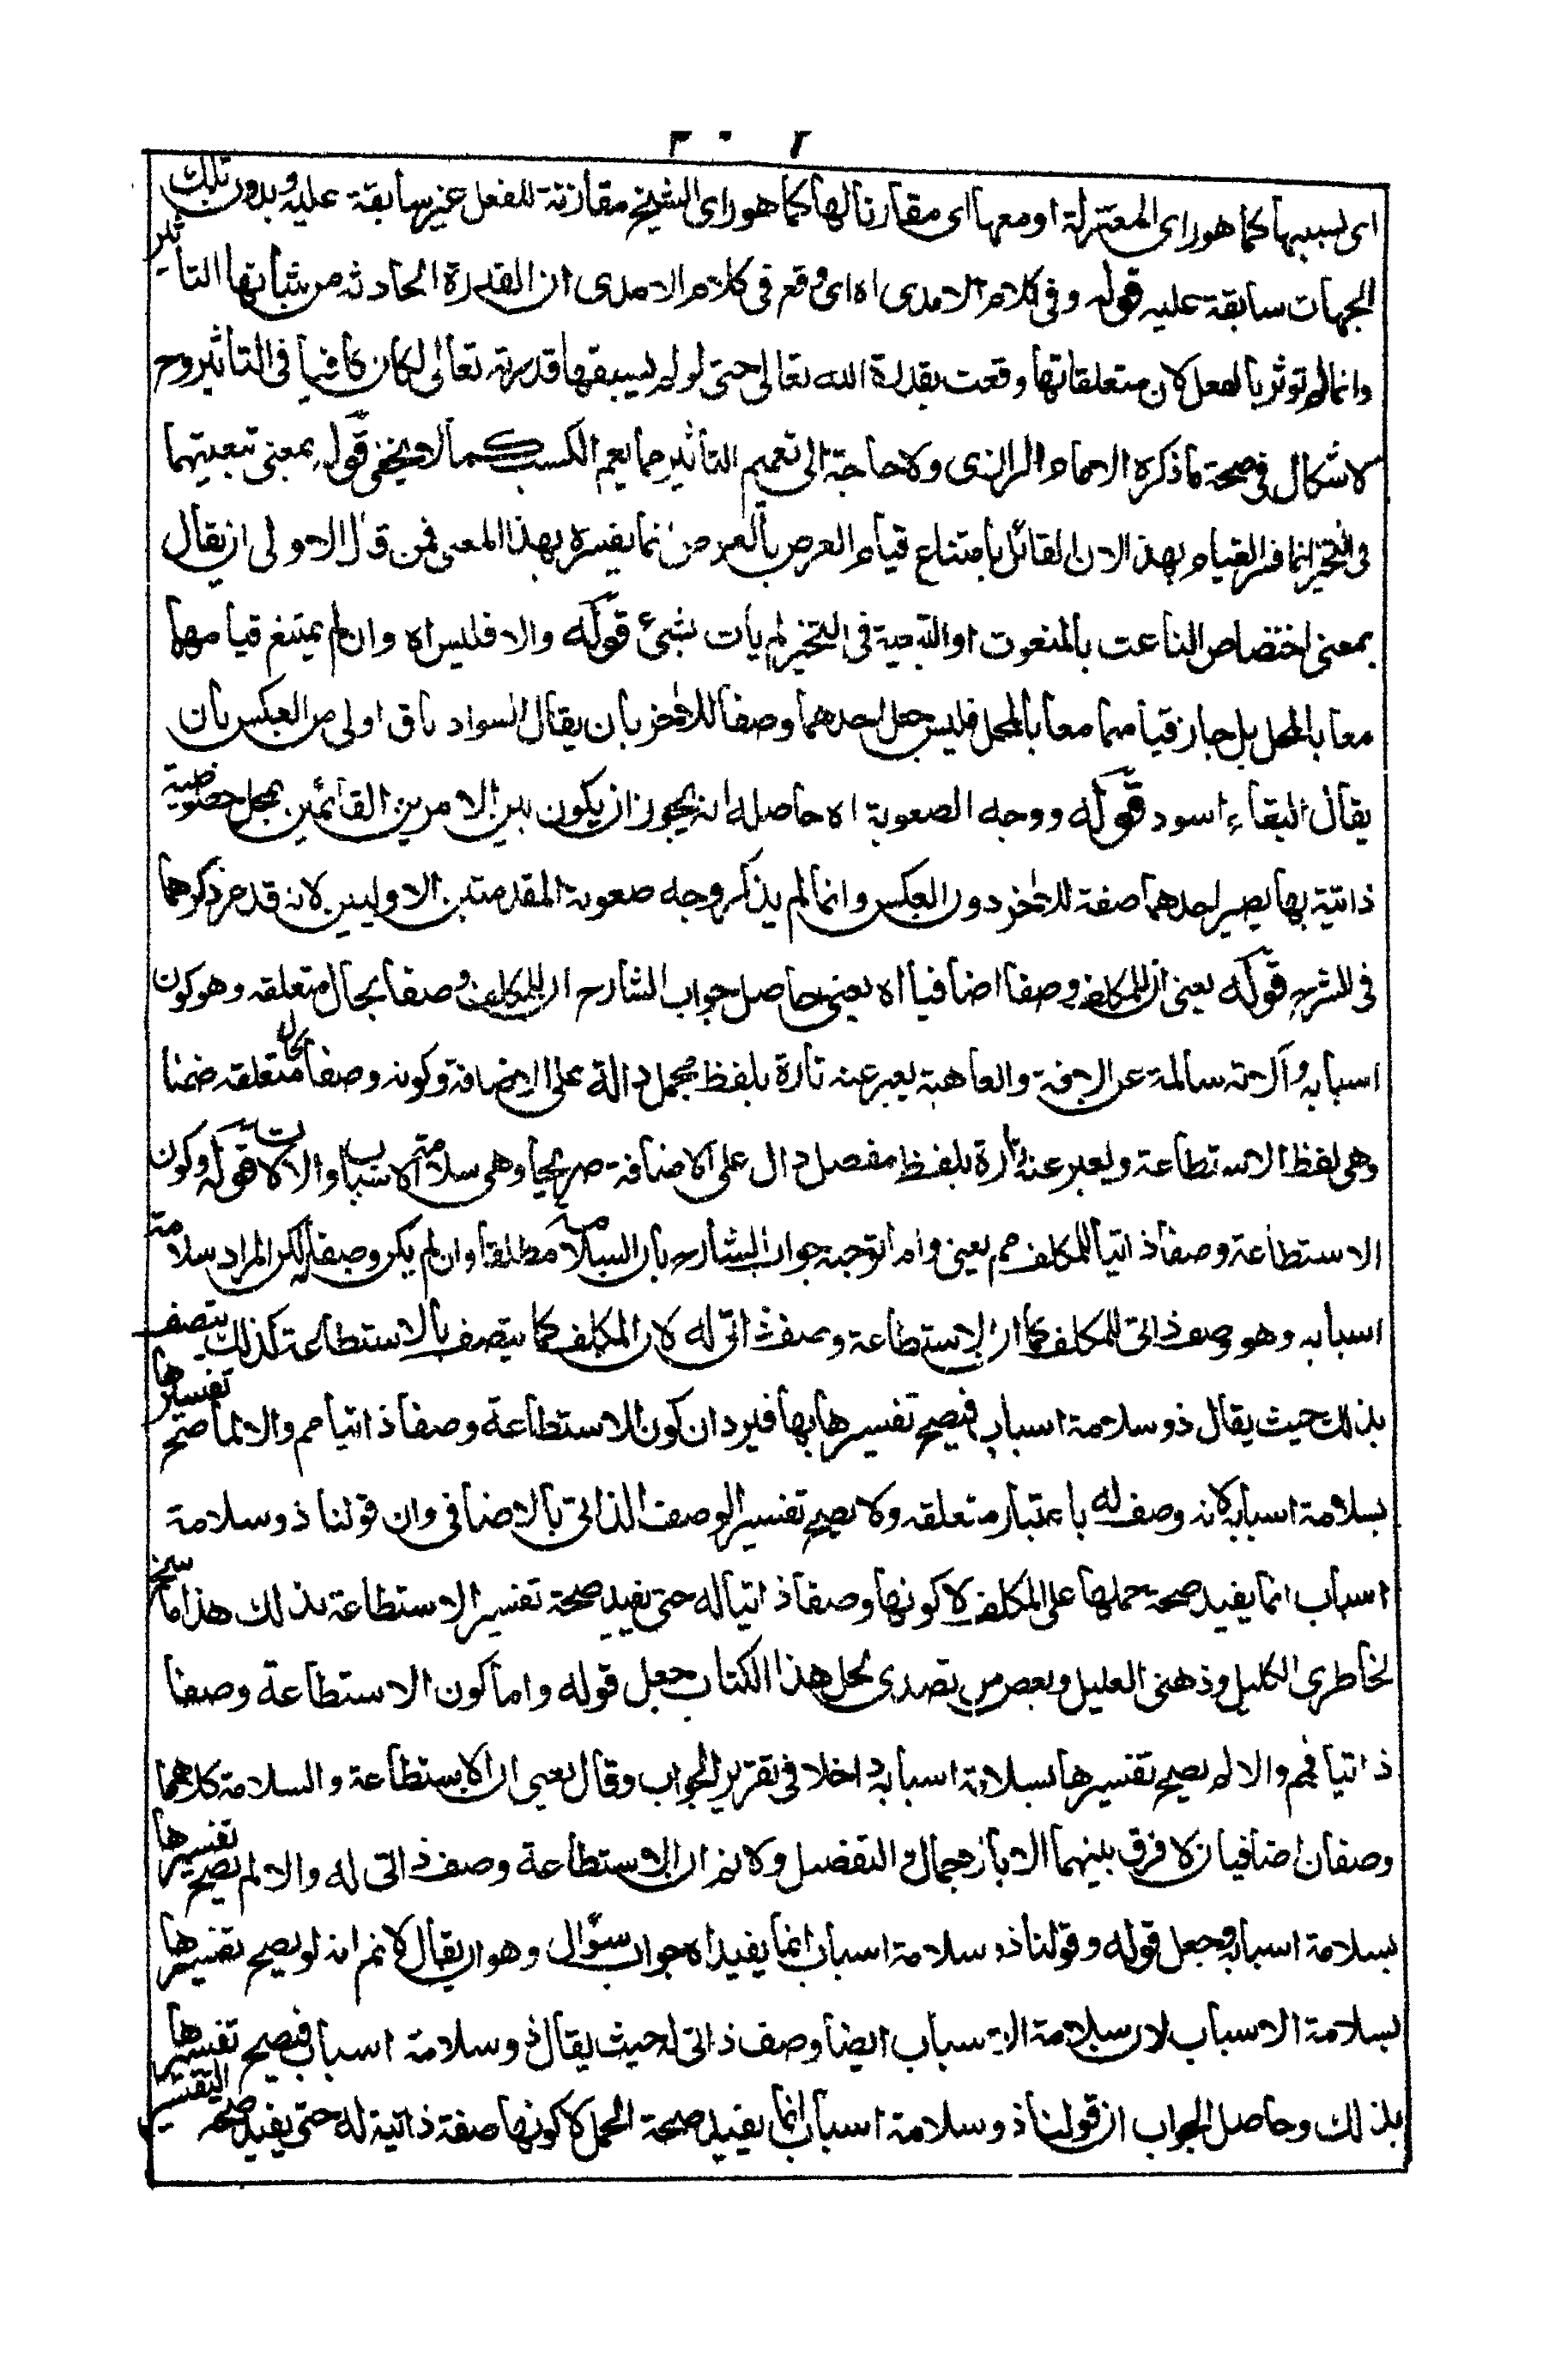 اى بسببها كما هو راى المعتزلة او معها اى مقارنا لها كما هو راى الشيخ مقارنة للفعل غير سابقة عليه وبدون تلك
الجهات سابقة عليه قوله وفى كلام الامدى اه اى وقع فى كلام الامدى ان القدرة الحادثه من شانها التاثير
وانما لم توثر بالفعل لان متعلقاتها وقعت بقدرة الله تعالى حتى لو لم يسبقها قدرته تعالى لكان كافيا فى التاثير وح
لا شكال فى صحة ما ذكره الامام الرازى ولا حاجة الى تعميم التأثير مما يعم الكسب كما لا يخفى قوله بمعنى تبعيتهما
فى التحيز انما فسر القيام بهذا لان القائل بامتناع قيام العرض بالعرض انما يفسره بهذا المعنى فمن قال الاولى ان يقال
بمعنى اختصاص الناعت بالمنعوت او التبعية فى التحيز لم يأت بشئ قوله والا فليس اه وان لم يمتنع قيامهما
معا بالمحل بل جاز قيامهما معا بالمحل فليس جعل احدهما وصفا للاخر بان يقال السواد باق اولى من العكس بان
يقال البقاء اسود قوله ووجه الصعوبة اه حاصله انه يجوز ان يكون بين الامرين القائمين بمحل خصوصية
ذاتية بها يصير احدهما صفة للاخر دون العكس وانما لم يذكر وجه صعوبة المقدمتين الاوليين لانه قد مر ذكرهما
فى الشرح قوله يعنى ان للمكلف وصفا اضافيا اه يعنى حاصل جواب الشارح ان للمكلف وصفا بحال متعلقه وهو كون
اسبابه وآلاته سالمة عن الافة والعاهة يعبر عنه تارة بلفظ مجمل دالة على الاضافة وكونه وصفا بحال متعلقه ضمنا
وهى لفظ الاستطاعة ويعبر عنه تارة بلفظ مفصل دال على الاضافة صريحا وهى سلامة الاسباب والالات قوله وكون
الاستطاعة وصفا ذاتيا للمكلف مم يعنى واما توجيه جواب الشارح بان السلامة مطلقا وان لم يكن وصفا له لكن المراد سلامة
اسبابه وهو وصف ذاتى للمكلف كما ان الاستطاعة وصف ذاتى له لان المكلف كما يتصف بالاستطاعة كذلك يتصف
بذلك حيث يقال ذو سلامة اسباب فيصح تفسيرها بها فيرد ان كون الاستطاعة وصفا ذاتيا مم والا لما صح تفسيرها
بسلامة اسبابه لانه وصف له باعتبار متعلقه ولا يصح تفسير الوصف الذاتى بالاضافى وان قولنا ذو سلامة
اسباب انما يفيد صحة حملها على المكلف لا كونها وصفا ذاتيا له حتى يفيد صحة تفسير الاستطاعة بذلك هذا ما سنح
لخاطرى الكليل وذهنى العليل وبعض من تصدى لحل هذا الكتاب جعل قوله واما كون الاستطاعة وصفا
ذاتيا فمم والا لم يصح تفسيرها بسلامة اسبابه داخلا فى تقرير الجواب وقال يعنى ان الاستطاعة والسلامة كلاهما
وصفان اضافيان لا فرق بينهما الا بالاجمال والتفصيل ولا نم ان الاستطاعة وصف ذاتى له والا لم يصح تفسيرها
بسلامة اسبابه وجعل قوله وقولنا ذو سلامة اسباب انما يفيد اه جواب سؤال وهو ان يقال لا نم انه لو يصح تفسيرها
بسلامة الاسباب لان سلامة الاسباب ايضا وصف ذاتى له حيث يقال ذو سلامة اسباب فيصح تفسيرها
بذلك وحاصل الجواب ان قولنا ذو سلامة اسباب انما يفيد صحة الحمل لا كونها صفة ذاتية له حتى يفيد صحة التفسير